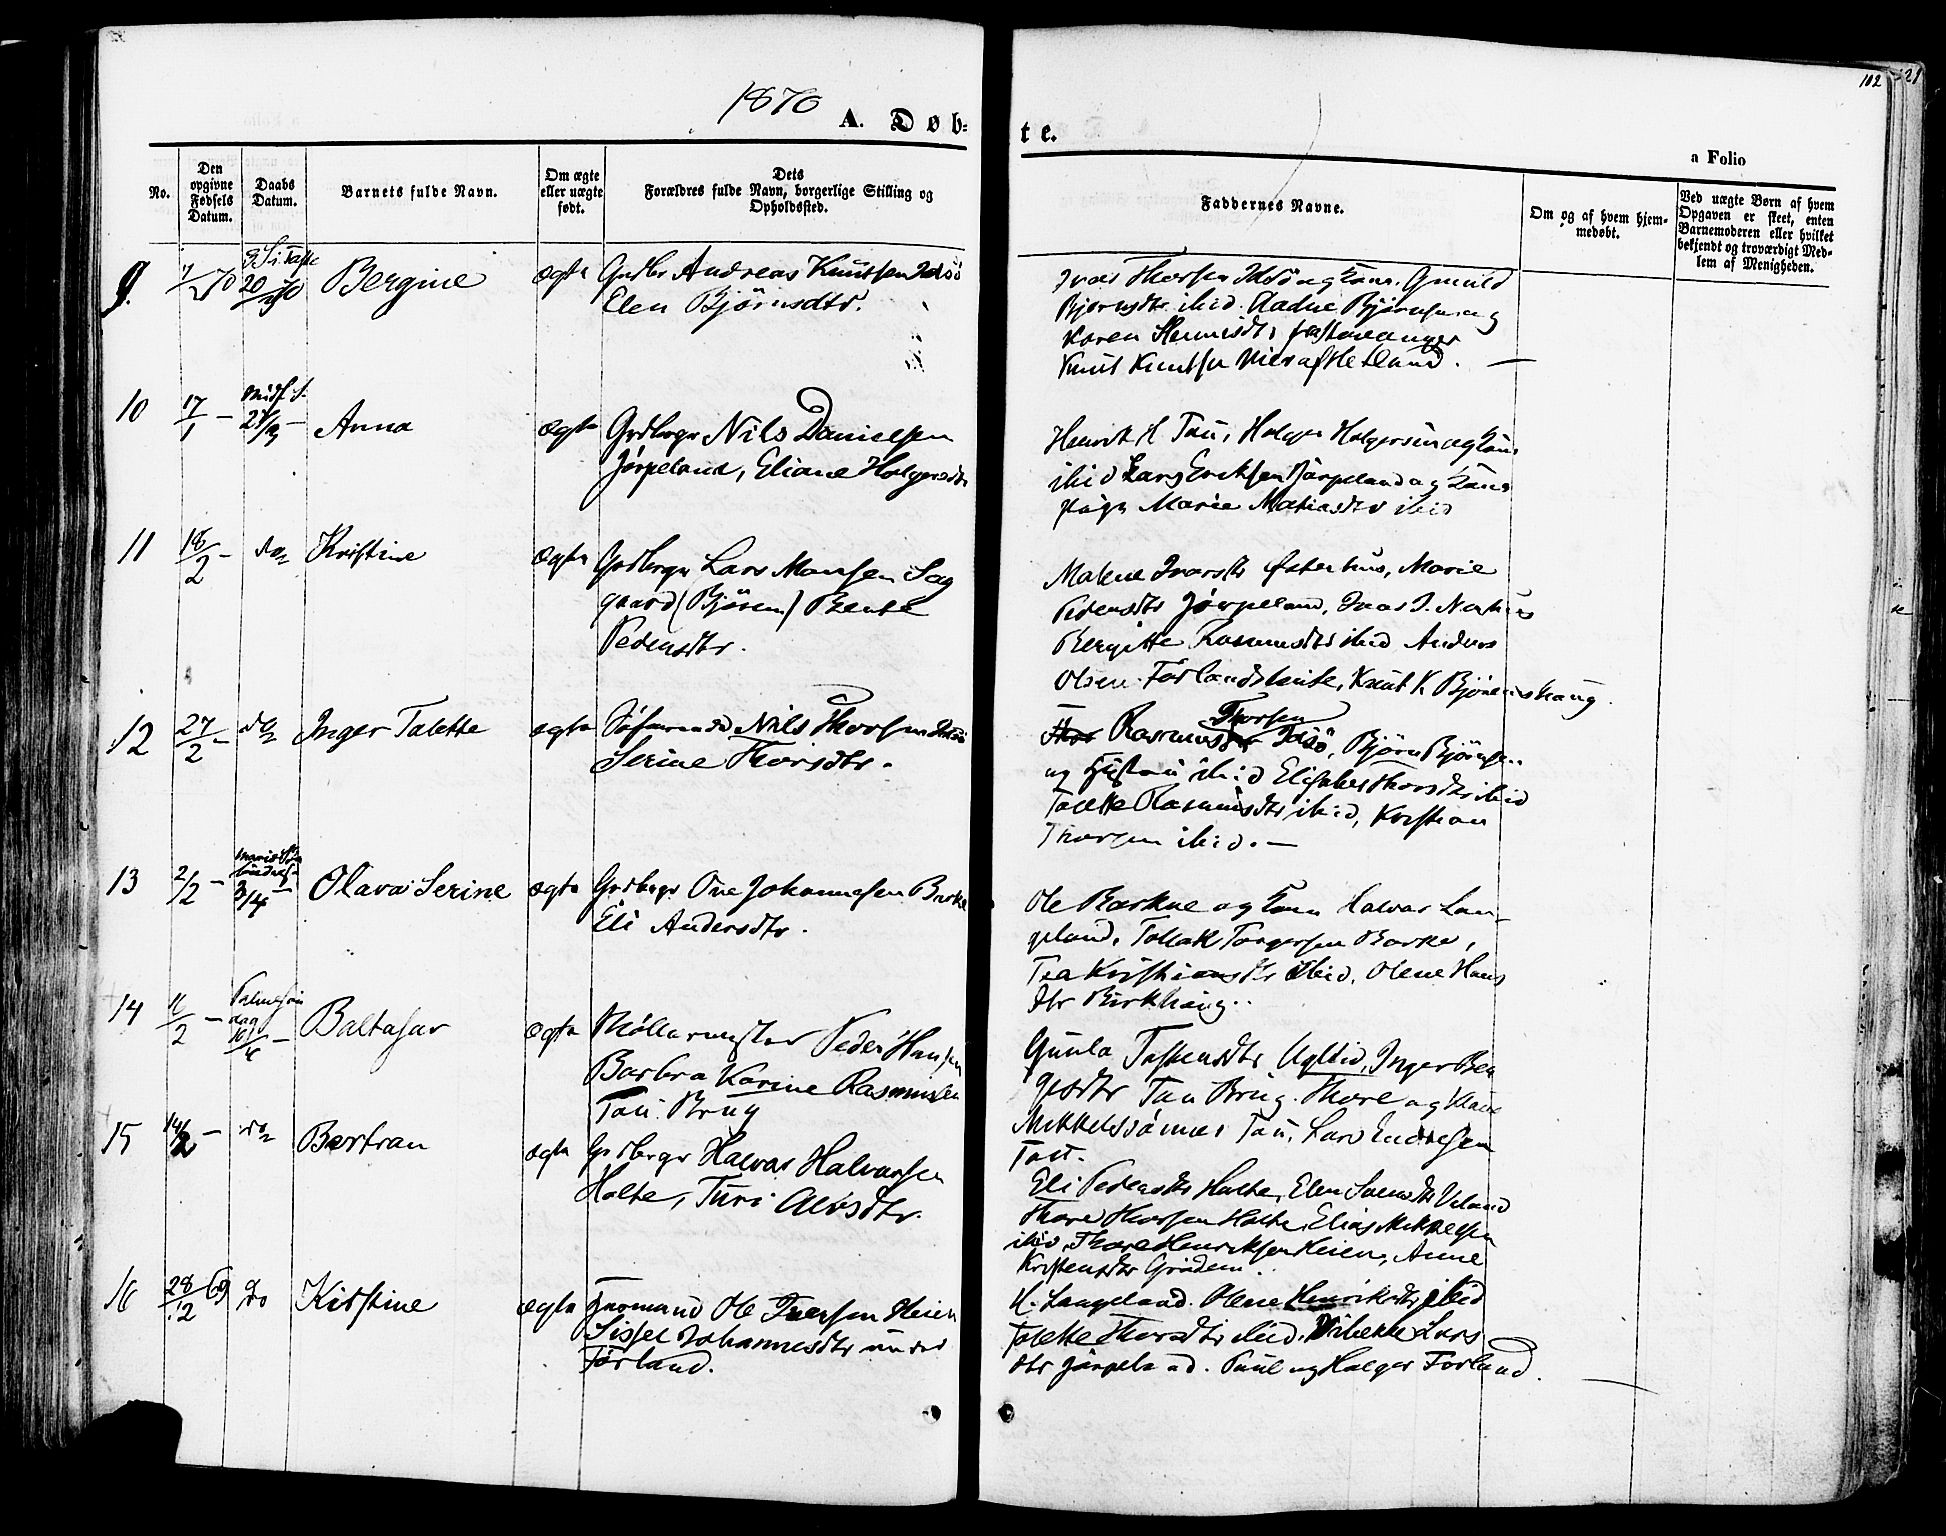 1870
A. Døb-
te.
102
a Folio
No.
Den
opgivne
Fødsels
Datum.
Daabs
Datum.
Barnets fulde Navn.
Om ægte
eller uægte
født.
Dets
Forældres fulde Navn, borgerlige Stilling og
Opholdssted.
Faddernes Navne.
Om og af hvem hjem-
medøbt.
Ved uægte Børn af hvem
Opgaven er skeet, enten
Barnemoderen eller hvilket
bekjendt og troværdigt Med-
lem af Menigheden.
9.
20
Bergine
ægte
Andreas Knutsen Idsö
Elen Björnsdtr.
Ivar Thorsen Idsö og Kone. Gunild
Björnsdtr. ibid. Aadne Björnsen og
Karen
Knut Knutsen Hetland. —
10 17/1 – 27/3 – Anna ægte Grdbrgr Nils Danielsen
Jörpeland, Eliane Holgersdtr
Henrik H Tau, Holger Holgersen og Kone
ibid Lars Eriksen Jörpeland og Kone
pige Marie Matiasdtr ibid
11 18/2 – do Kristine ægte Grdbrgr Lars Monsen Sag
gaard (Björem) Bente
Pedersdtr.
Malene Ivarsdtr Österhus, Marie
Pedersdtr Jörpeland, Ivar I.
Bergitte Rasmusdtr ibid Anders
Olsen Förlands Knut K. Björemshaug.
12 27/2 – do Inger Talette ægte Söfarende Nils Thorsen Idsö
Serine Thorsdtr.
Thorsen
Rasmus Idsö, Björn Björnsen
og Hustru ibid Elisabet Thorsdtr ibid
Talette Rasmusdtr ibid, Kristian
Thorsen ibid. —
13 2/2 – 3/4 – Olava Serine ægte Grdbrgr Ove Johannesen Barke
Eli Andersdtr.
Ole Barkae og Kone Halvar Lan-
geland, Tollak Torgersen Barke,
Tea Kristiansdtr ibid, Olene Hans
dtr Birkhaug.
14 11/2 – Palmesön
dag
10/4 – Baltasar ægte Möllermester Peder Hansen
Barbra Karine Rasmusen
Tau Brug
Gunla Ugltid, Inger Ben
Tau Brug. Thore og
Mikkelssönner Tau, Lars Endresen
Tau.
15 14/2 – do Bertran ægte Grdbrgr Halvar Halvarsen
Holte, Turi Alvsdtr.
Eli Pedersdtr Holte, Elen Veland
Thore Thorsen Holte, Elias Mikkelsen
ibid, Thore Henriksen Heien, Anne
Kristensdtr Grödem.
16 28/12 69 do Kirstine ægte Huusmand Ole Iversen Heien
Sissel Johannesdtr under
Förland.
H. Langeland. Olene Henriksdtr ibid
Talette Thorsdtr ibid. Vibekke Lars
dtr Jörpeland. Paul og Holger Forland.